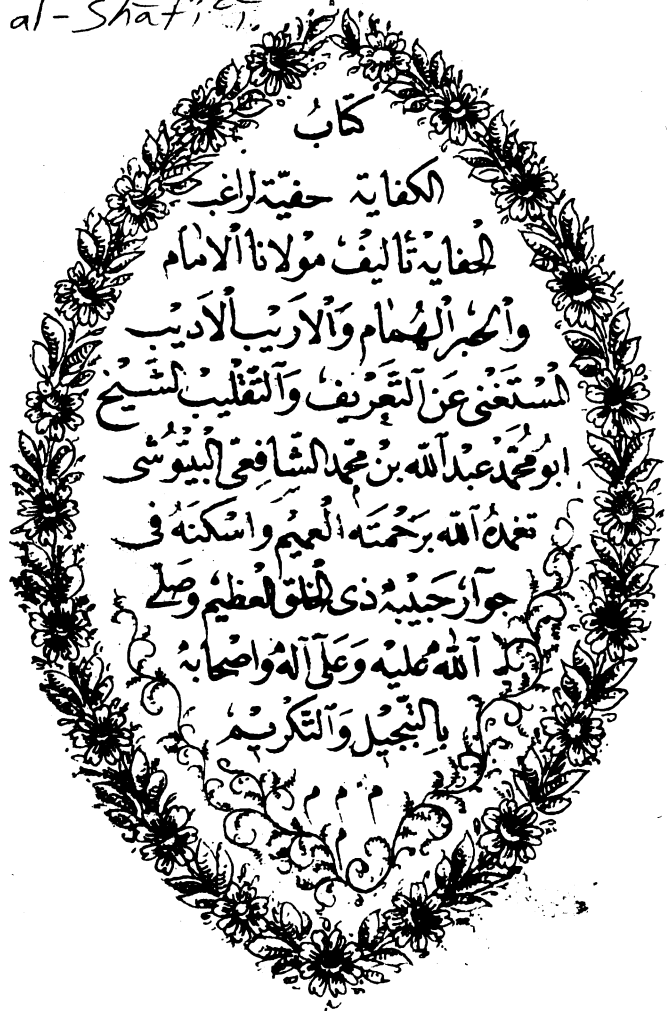 al-Shāfiʿī.
كتابُ
الكفاية حفيّة لراغب
الحفاية تأليف مولانا الامام
والحبر الهمام والاريب الاديب
المستغنى عن التعريف والتقليب الشيخ
ابو محمد عبد الله بن محمد الشافعي البيتوشى
تغمده الله برحمته العميم واسكنه فى
جوار حبيبه ذى الخلق العظيم وصلے
الله عليه وعلى آله واصحابه
بالتبجيل والتكريم
م م م
م م